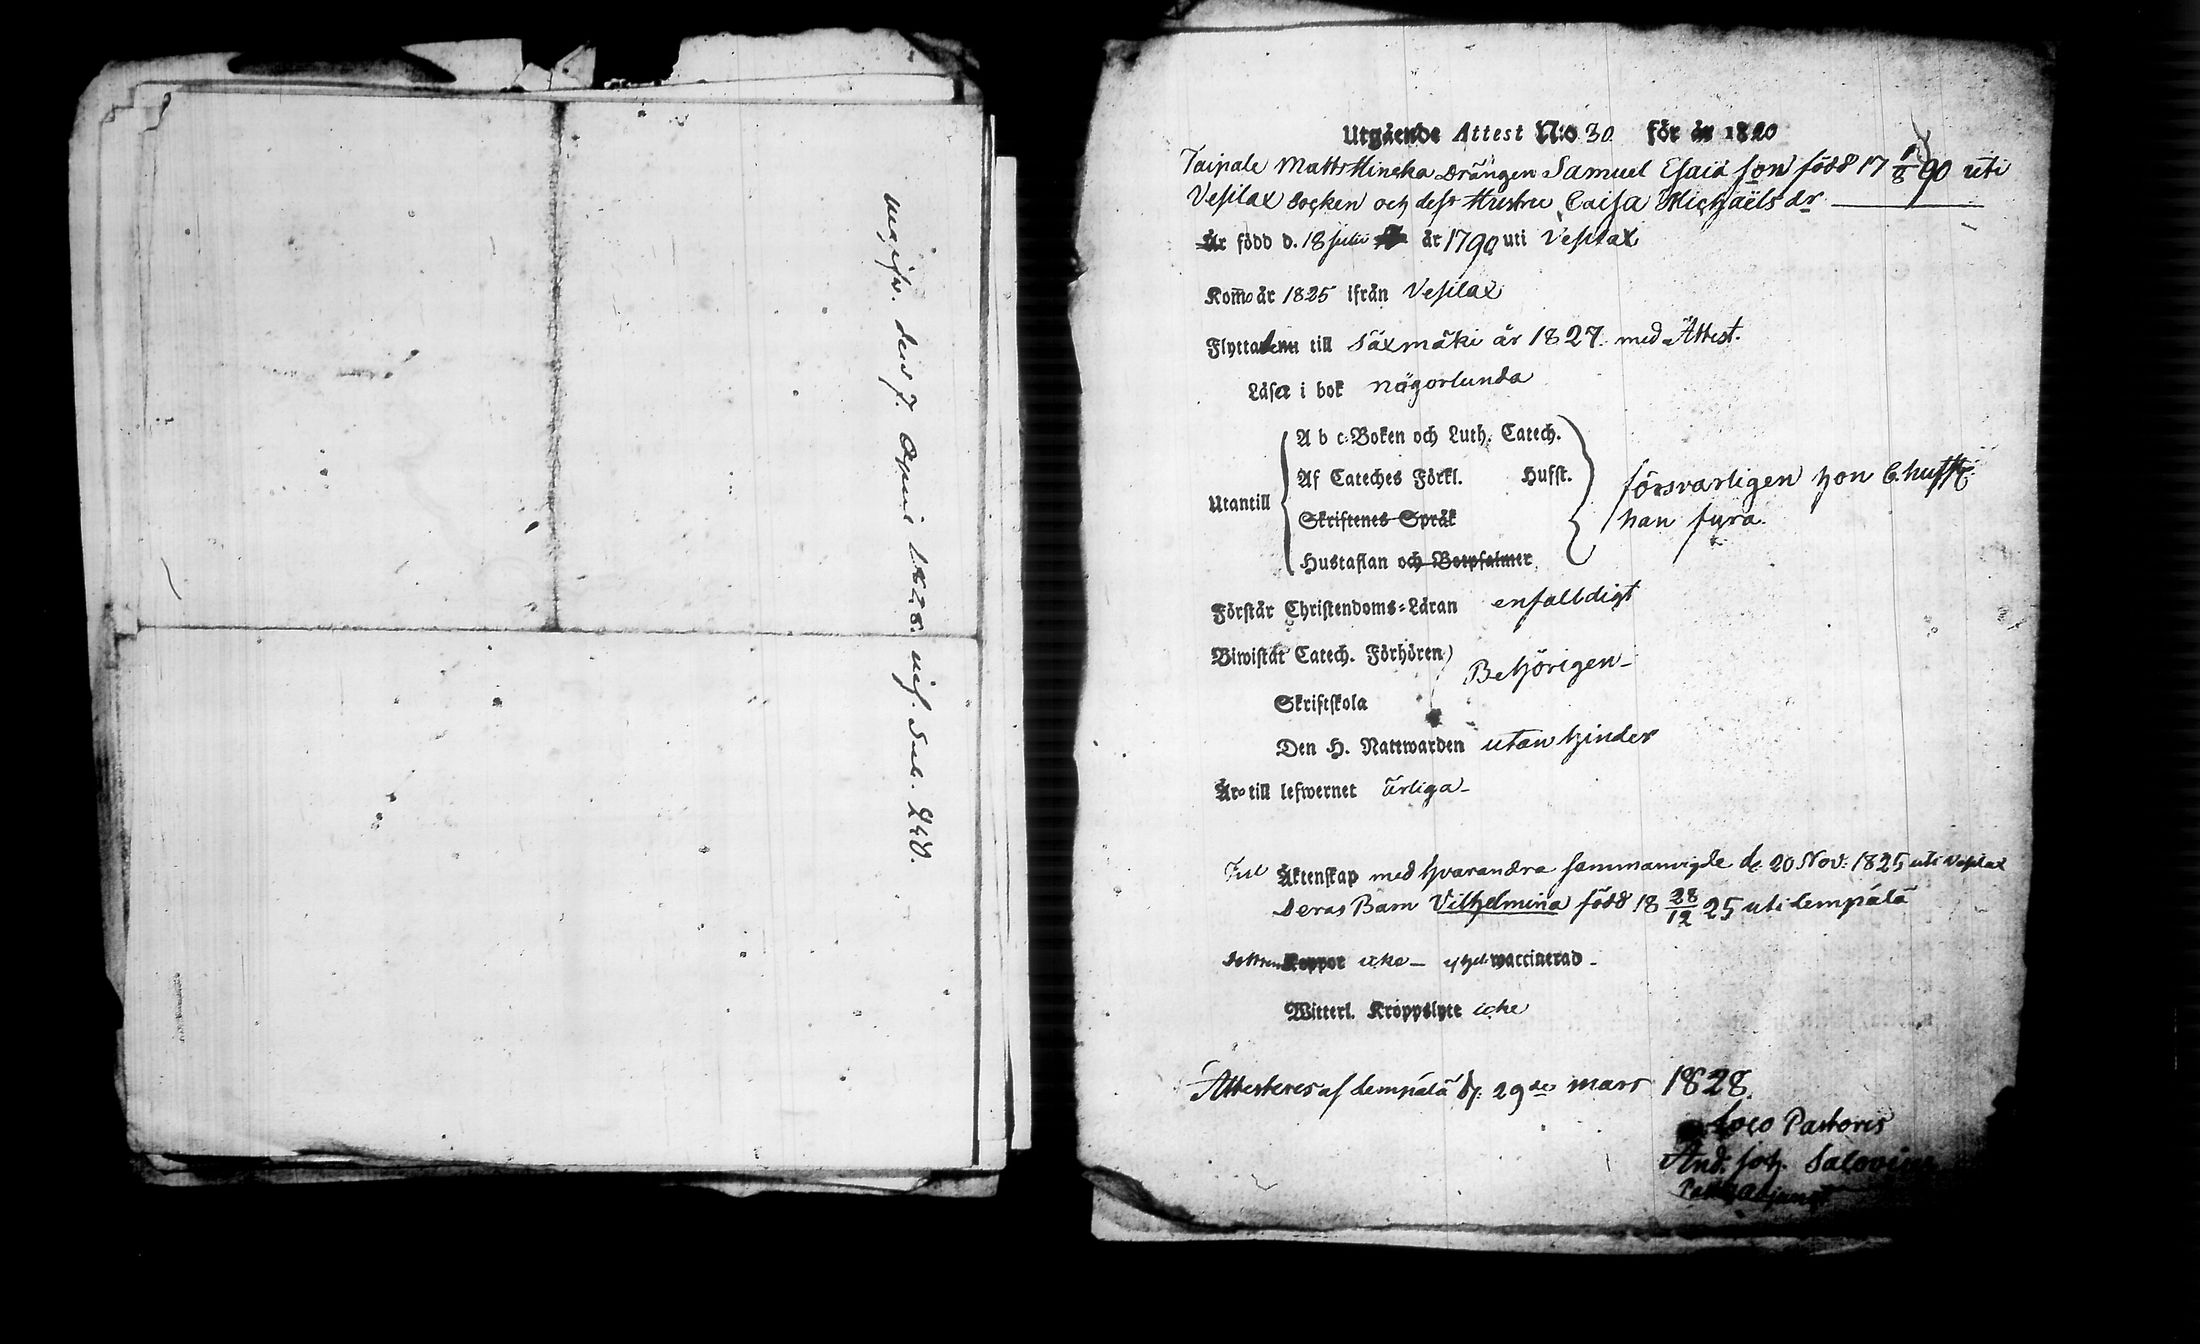 den 7. April 1828. 240.
Utgående Attest N:o 30. för år 1820
Taipale Matts Hinska Drängen Samuel Esaia son född 17 1/8 90 uti
Vesilax Socken och dess Hustru Caisa Michaëls dr
Är född d. 18 Julii år 1790 uti Vesilax
Kom̄o år 1825 ifrån Vesilax
Flytta till Säxmäki år 1827. med Attest.
Läsa i bok någorlunda
A b c-Boken och Luth. Catech.
Af Cateches Förkl. Hufst. försvarligen hon
Utantill
Skriftenes Språk han fyra.
Hustaflan och Botpsalmer
Förstår Christendoms-Läran enfalldigt
Biwistät Catech. Förhören) Behörigen
Skriftskola
Den H. Nattwarden utan hinder
Äro till lefwernet ärliga
Äktenskap med hvarandra sammanvigde d. 20 Nov: 1825 uti Vesilax
deras Barn Vilhelmina född 18 28/12 25 uti Lempälä
Koppor icke waccinerad
Witterl. Kroppslyte icke
Attesteres af Lempälä d: 29de mars 1828.
Loco Pastoris
And. Joh. Salovius